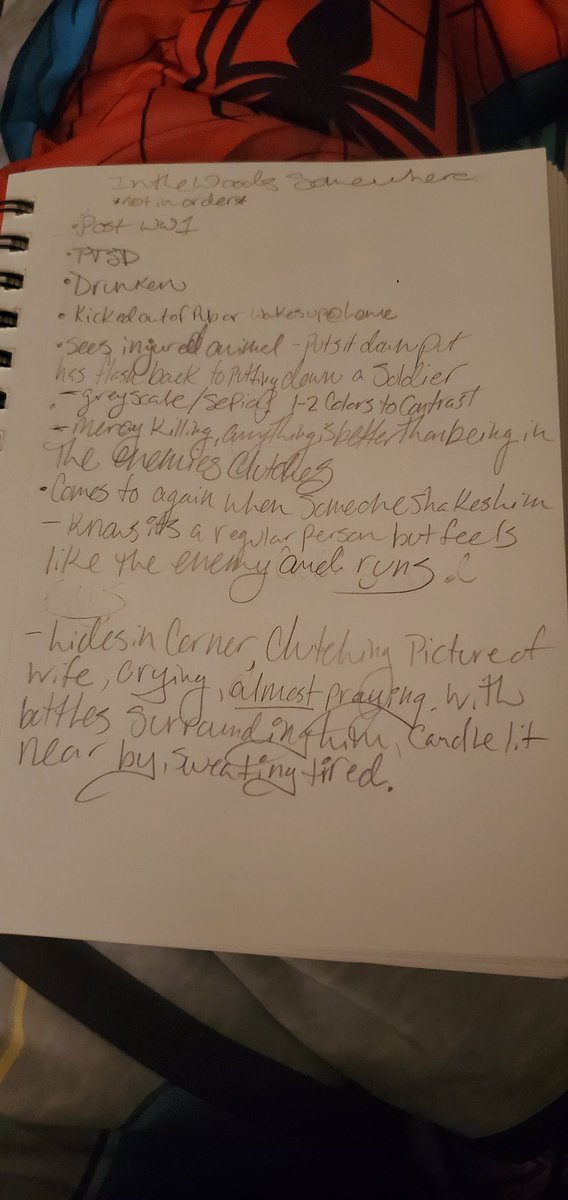 In the Woods Somewhere
*not in order*
• Post WW1
• PTSD
• Drunken
• Kicked out of Pub or wakes up @ home
• Sees injured animal - puts it down but
has flash back to Putting down a Soldier
- greyscale/sepia? 1-2 Colors to Contrast
- mercy Killing, anything is better than being in
The enemies Clutches
• Comes to again when Someone shakes him
- Knows its a regular person but feels
like the enemy and runs
- hides in Corner, Clutching Picture of
wife, crying, almost praying. With
bottles Surrounding him, Candle lit
near by, sweating tired.